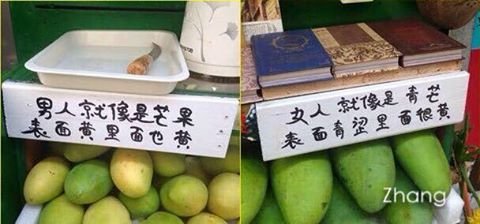 男人就像是芒果
表面黄里面也黄
女人就像是青芒
表面青涩里面很黄
Zhang